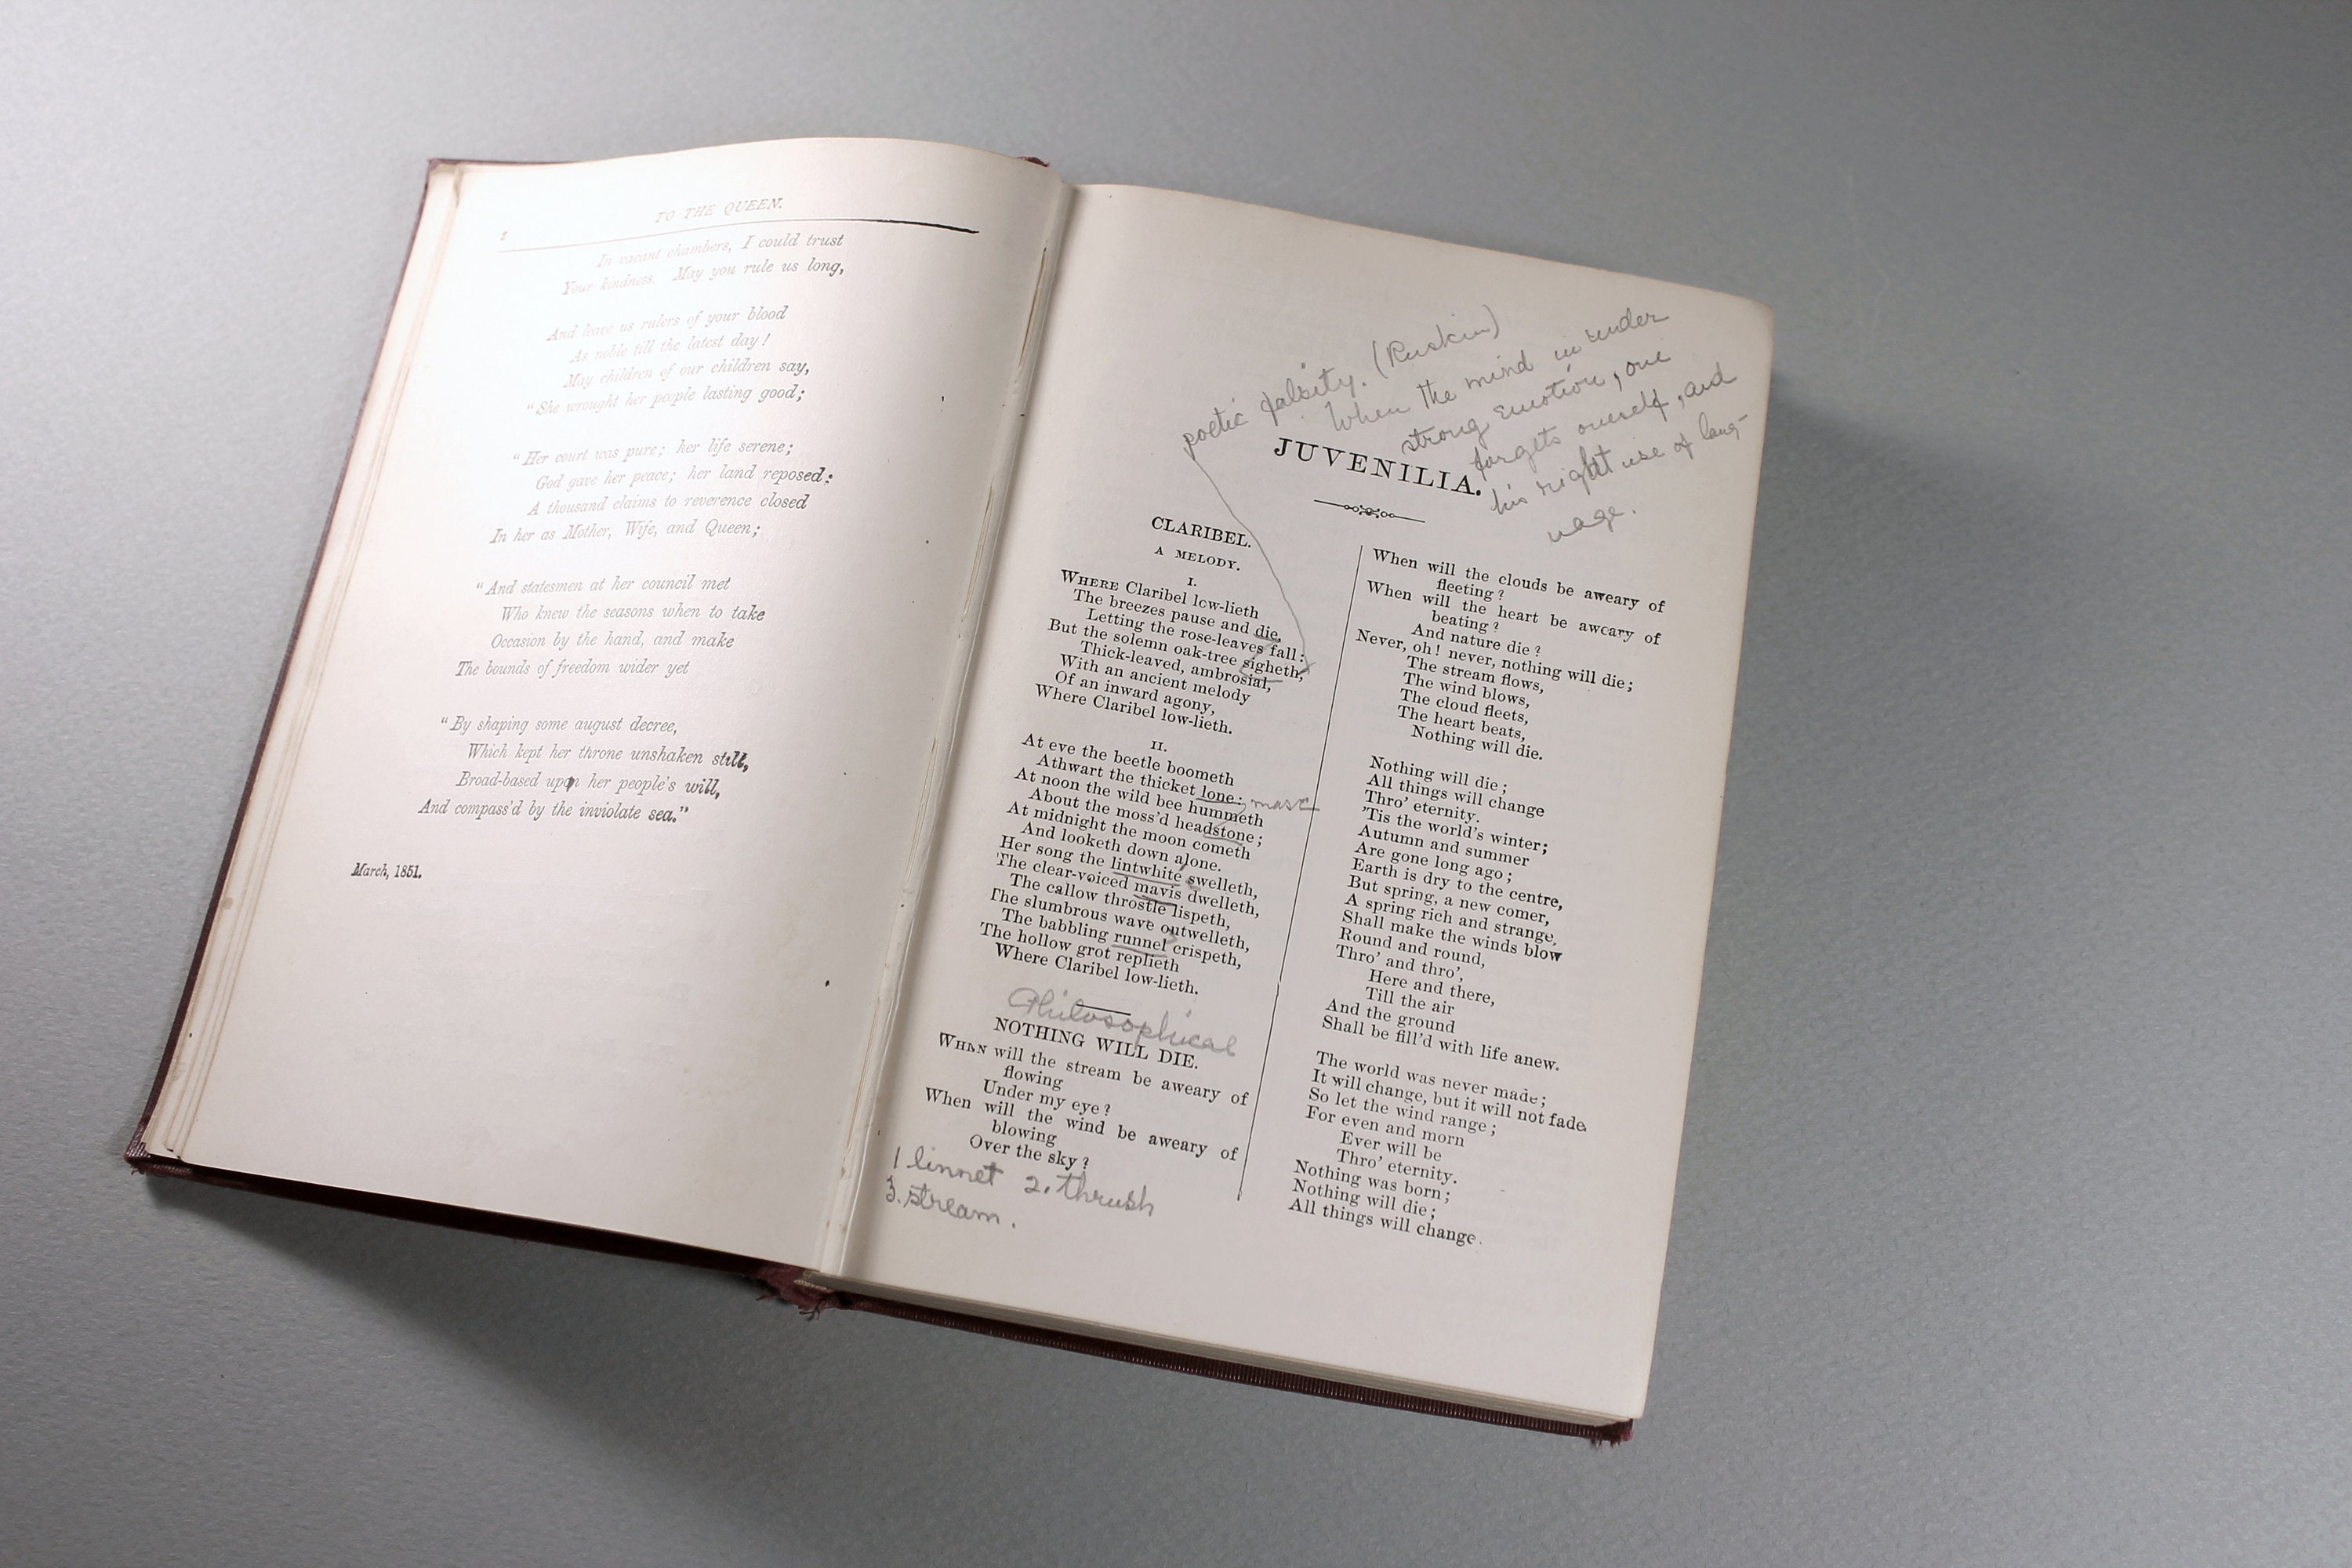 2
TO THE QUEEN.
In vacant chambers, I could trust
Your kindness. May you rule us long,
And leave us rulers of your blood
As noble till the latest day!
May children of our children say,
"She wrought her people lasting good;
"Her court was pure; her life serene;
God gave her peace; her land reposed;
A thousand claims to reverence closed
In her as Mother, Wife, and Queen;
"And statesmen at her council met
Who knew the seasons when to take
Occasion by the hand, and make
The bounds of freedom wider yet
"By shaping some august decree,
Which kept her throne unshaken still,
Broad-based upon her people's will,
And compass'd by the inviolate sea."
March, 1851.
poetic falsity. (Ruskin)
When the mind is under
strong emotion, one
forgets oneself, and
his right use of lang-
uage.
JUVENILIA.
CLARIBEL.
A MELODY.
I.
WHERE Claribel low-lieth
The breezes pause and die,
Letting the rose-leaves fall:
But the solemn oak-tree sigheth,
Thick-leaved, ambrosial,
With an ancient melody
Of an inward agony,
Where Claribel low-lieth.
II.
At eve the beetle boometh
Athwart the thicket lone:
At noon the wild bee hummeth
About the moss'd headstone;
At midnight the moon cometh
And looketh down alone.
Her song the lintwhite swelleth,
The clear-voiced mavis dwelleth,
The callow throstle lispeth,
The slumbrous wave outwelleth,
The babbling runnel crispeth,
The hollow grot replieth
Where Claribel low-lieth.
masc
Philosophical
NOTHING WILL DIE.
WHEN will the stream be aweary of
flowing
Under my eye?
When will the wind be aweary of
blowing
Over the sky?
1 linnet 2. thrush
3. stream.
When will the clouds be aweary of
fleeting?
When will the heart be aweary of
beating?
And nature die?
Never, oh! never, nothing will die;
The stream flows,
The wind blows,
The cloud fleets,
The heart beats,
Nothing will die.
Nothing will die;
All things will change
Thro' eternity.
'Tis the world's winter;
Autumn and summer
Are gone long ago;
Earth is dry to the centre,
But spring, a new comer,
A spring rich and strange,
Shall make the winds blow
Round and round,
Thro' and thro',
Here and there,
Till the air
And the ground
Shall be fill'd with life anew.
The world was never made;
It will change, but it will not fade.
So let the wind range;
For even and morn
Ever will be
Thro' eternity.
Nothing was born;
Nothing will die;
All things will change.